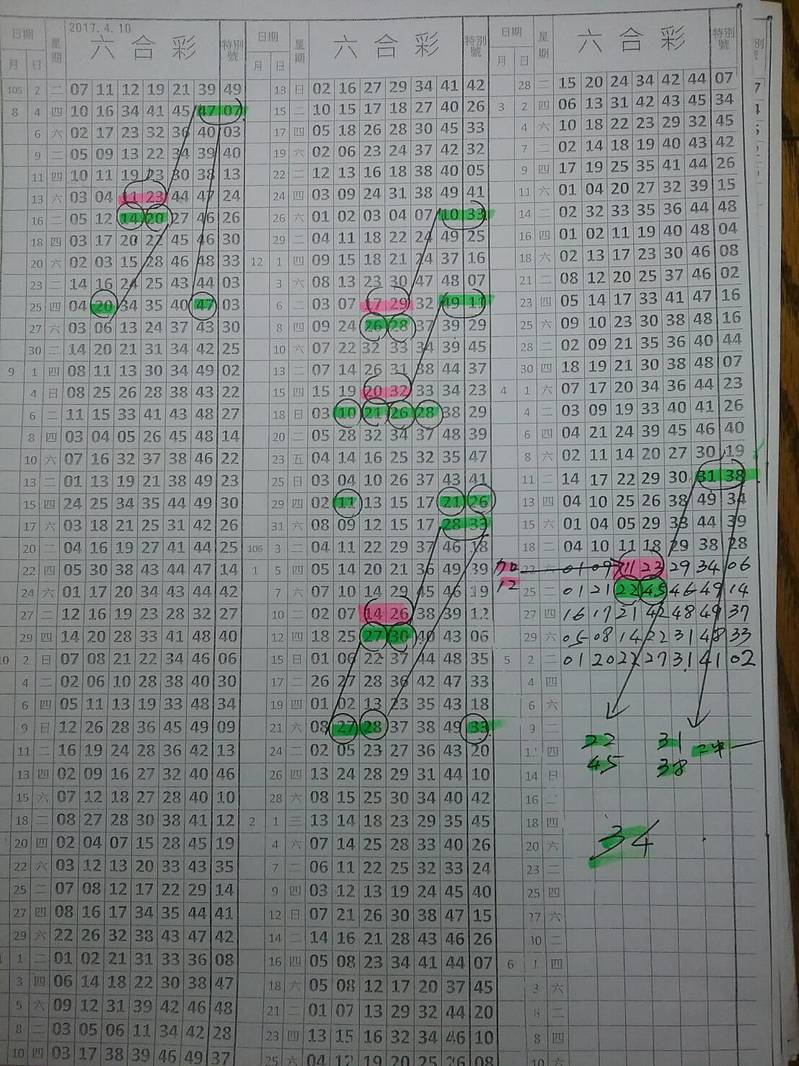 2017.4.10
日期 星期 六合彩 特別號
月 日
105 2 二 07 11 12 19 21 39 49
8 4 四 10 16 34 41 45 47 07
6 六 02 17 23 32 36 40 03
9 二 05 09 13 22 34 39 40
11 四 10 11 19 23 30 38 13
13 六 03 04 11 23 44 47 24
16 二 05 12 14 20 27 46 26
18 四 03 17 20 22 45 46 30
20 六 02 03 15 28 46 48 33
23 二 14 16 24 25 43 44 03
25 四 04 20 34 35 40 47 03
27 六 03 06 13 24 37 43 30
30 二 14 20 21 31 34 42 25
9 1 四 08 11 13 30 34 49 02
4 日 08 25 26 28 38 43 22
6 二 11 15 33 41 43 48 27
8 四 03 04 05 26 45 48 14
10 六 07 16 32 37 38 46 22
13 二 01 13 19 21 38 49 23
15 四 24 25 34 35 44 49 30
17 六 03 18 21 25 31 42 26
20 二 04 16 19 27 41 44 25
22 四 05 30 38 43 44 47 14
24 六 01 17 20 34 43 44 42
27 二 12 16 19 23 28 32 27
29 四 14 20 28 33 41 48 40
10 2 日 07 08 21 22 34 46 06
4 二 02 06 10 28 38 40 30
6 四 05 11 13 19 33 48 34
9 日 12 26 28 36 45 49 09
11 二 16 19 24 28 36 42 13
13 四 02 09 16 27 32 40 46
15 六 07 12 18 27 28 40 10
18 二 08 27 28 30 38 41 12
20 四 02 04 07 15 28 45 19
22 六 03 12 13 20 33 43 35
25 二 07 08 12 17 22 29 14
27 四 08 16 17 34 35 44 41
29 六 22 26 32 38 43 47 42
1 二 01 02 21 31 33 36 08
3 四 06 14 18 22 30 38 47
5 六 09 12 31 39 42 46 48
8 二 03 05 06 11 34 42 28
10 四 03 17 38 39 46 49 37
日期 星期 六合彩 特別號
月 日
13 日 02 16 27 29 34 41 42
15 二 10 15 17 18 27 40 26
17 四 05 18 26 28 30 45 33
19 六 02 06 23 24 37 42 32
22 二 12 13 16 18 38 40 05
24 四 03 09 24 31 38 49 41
26 六 01 02 03 04 07 10 33
29 二 04 11 18 22 24 49 25
12 1 四 09 15 18 21 24 37 16
3 六 08 13 23 30 47 48 07
6 二 03 07 17 29 32 49 11
8 四 09 24 26 28 37 39 29
10 六 07 22 32 33 34 39 45
13 二 07 14 26 31 38 44 37
15 四 15 19 20 32 33 34 23
18 日 03 10 21 26 28 38 29
20 二 05 28 32 34 37 48 39
23 五 04 14 16 25 32 35 47
25 日 03 04 10 26 37 43 41
29 四 02 11 13 15 17 21 26
31 六 08 09 12 15 17 28 33
106 3 二 04 11 22 29 37 46 18
1 5 四 05 14 20 21 36 49 39
7 六 07 10 14 29 45 46 19
10 二 02 07 14 26 38 39 12
12 四 18 25 27 30 40 43 06
15 日 01 06 22 37 44 48 35
17 二 26 27 28 36 42 47 33
19 四 01 02 13 23 35 43 18
21 六 08 27 28 37 38 49 33
24 二 02 05 23 27 36 43 20
26 四 13 24 28 29 31 44 10
28 六 08 15 25 30 34 40 42
2 1 三 13 14 18 23 29 35 45
4 六 07 14 25 28 33 40 26
7 二 06 11 22 25 32 33 24
9 四 03 12 13 19 24 45 40
12 日 07 21 26 30 38 47 15
14 二 14 16 21 28 43 46 26
16 四 05 08 23 34 41 44 07
18 六 05 08 12 17 20 37 45
21 二 01 07 13 29 32 44 20
23 四 13 15 16 32 34 46 10
25 六 04 12 19 20 25 26 08
日期 星期 六合彩 特別號
月 日
28 二 15 20 24 34 42 44 07
3 2 四 06 13 31 42 43 45 34
4 六 10 18 22 23 29 32 45
7 二 02 14 18 19 40 43 42
9 四 17 19 25 35 41 44 26
11 六 01 04 20 27 32 39 15
14 二 02 32 33 35 36 44 48
16 四 01 02 11 19 40 48 04
18 六 02 13 17 23 30 46 08
21 二 08 12 20 25 37 46 02
23 四 05 14 17 33 41 47 16
25 六 09 10 23 30 38 48 16
28 二 02 09 21 35 36 40 44
30 四 18 19 21 30 38 48 07
4 1 六 07 17 20 34 36 44 23
4 二 03 09 19 33 40 41 26
6 四 04 21 24 39 45 46 40
8 六 02 11 14 20 27 30 19
11 二 14 17 22 29 30 31 38
13 四 04 10 25 26 38 49 34
15 六 01 04 05 29 33 44 39
18 二 04 10 11 18 29 38 28
22 六 01 09 11 23 29 34 06
25 二 01 21 22 45 46 49 14
27 四 16 17 21 42 48 49 37
29 六 05 08 14 22 31 48 33
5 2 二 01 20 22 27 31 41 02
4 四
6 六
9 二
11 四
14 日
16 二
18 四
20 六
23 二
25 四
27 六
30 二
6 1 四
3 六
6 二
8 四
10 六
加
12
22 31 二中一
45 38
34